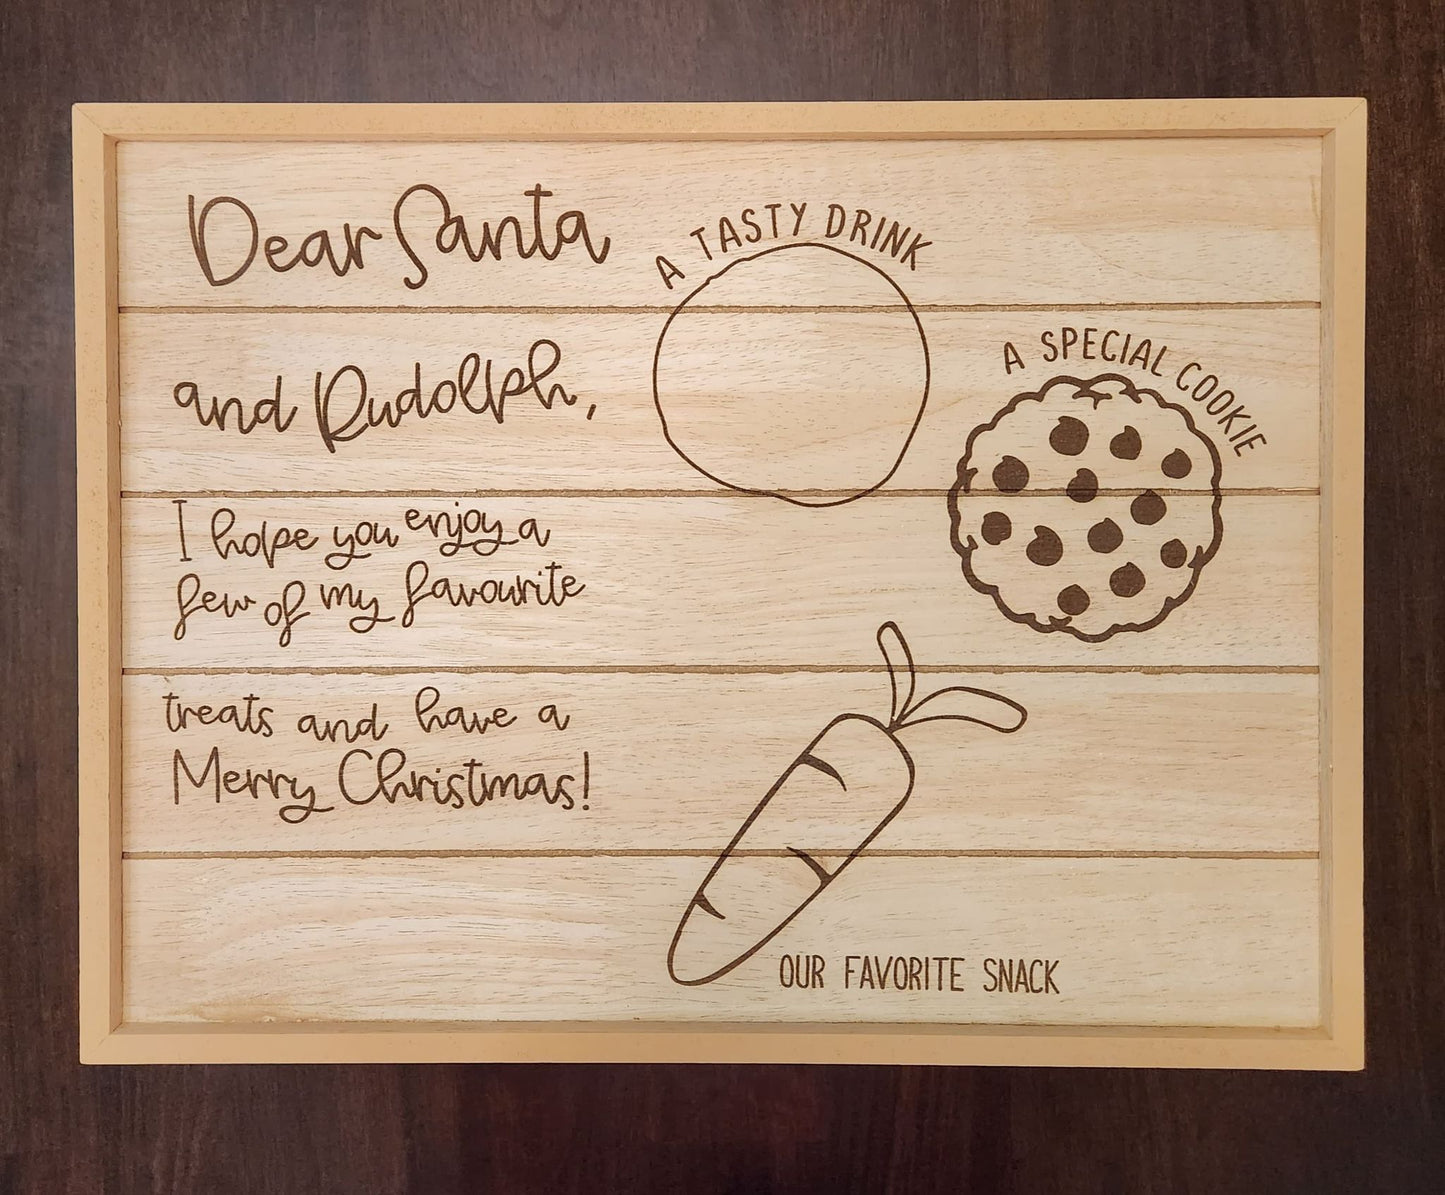 Dear Santa
and Rudolph,
I hope you enjoy a
few of my favourite
treats and have a
Merry Christmas!
A TASTY DRINK
A SPECIAL COOKIE
OUR FAVORITE SNACK